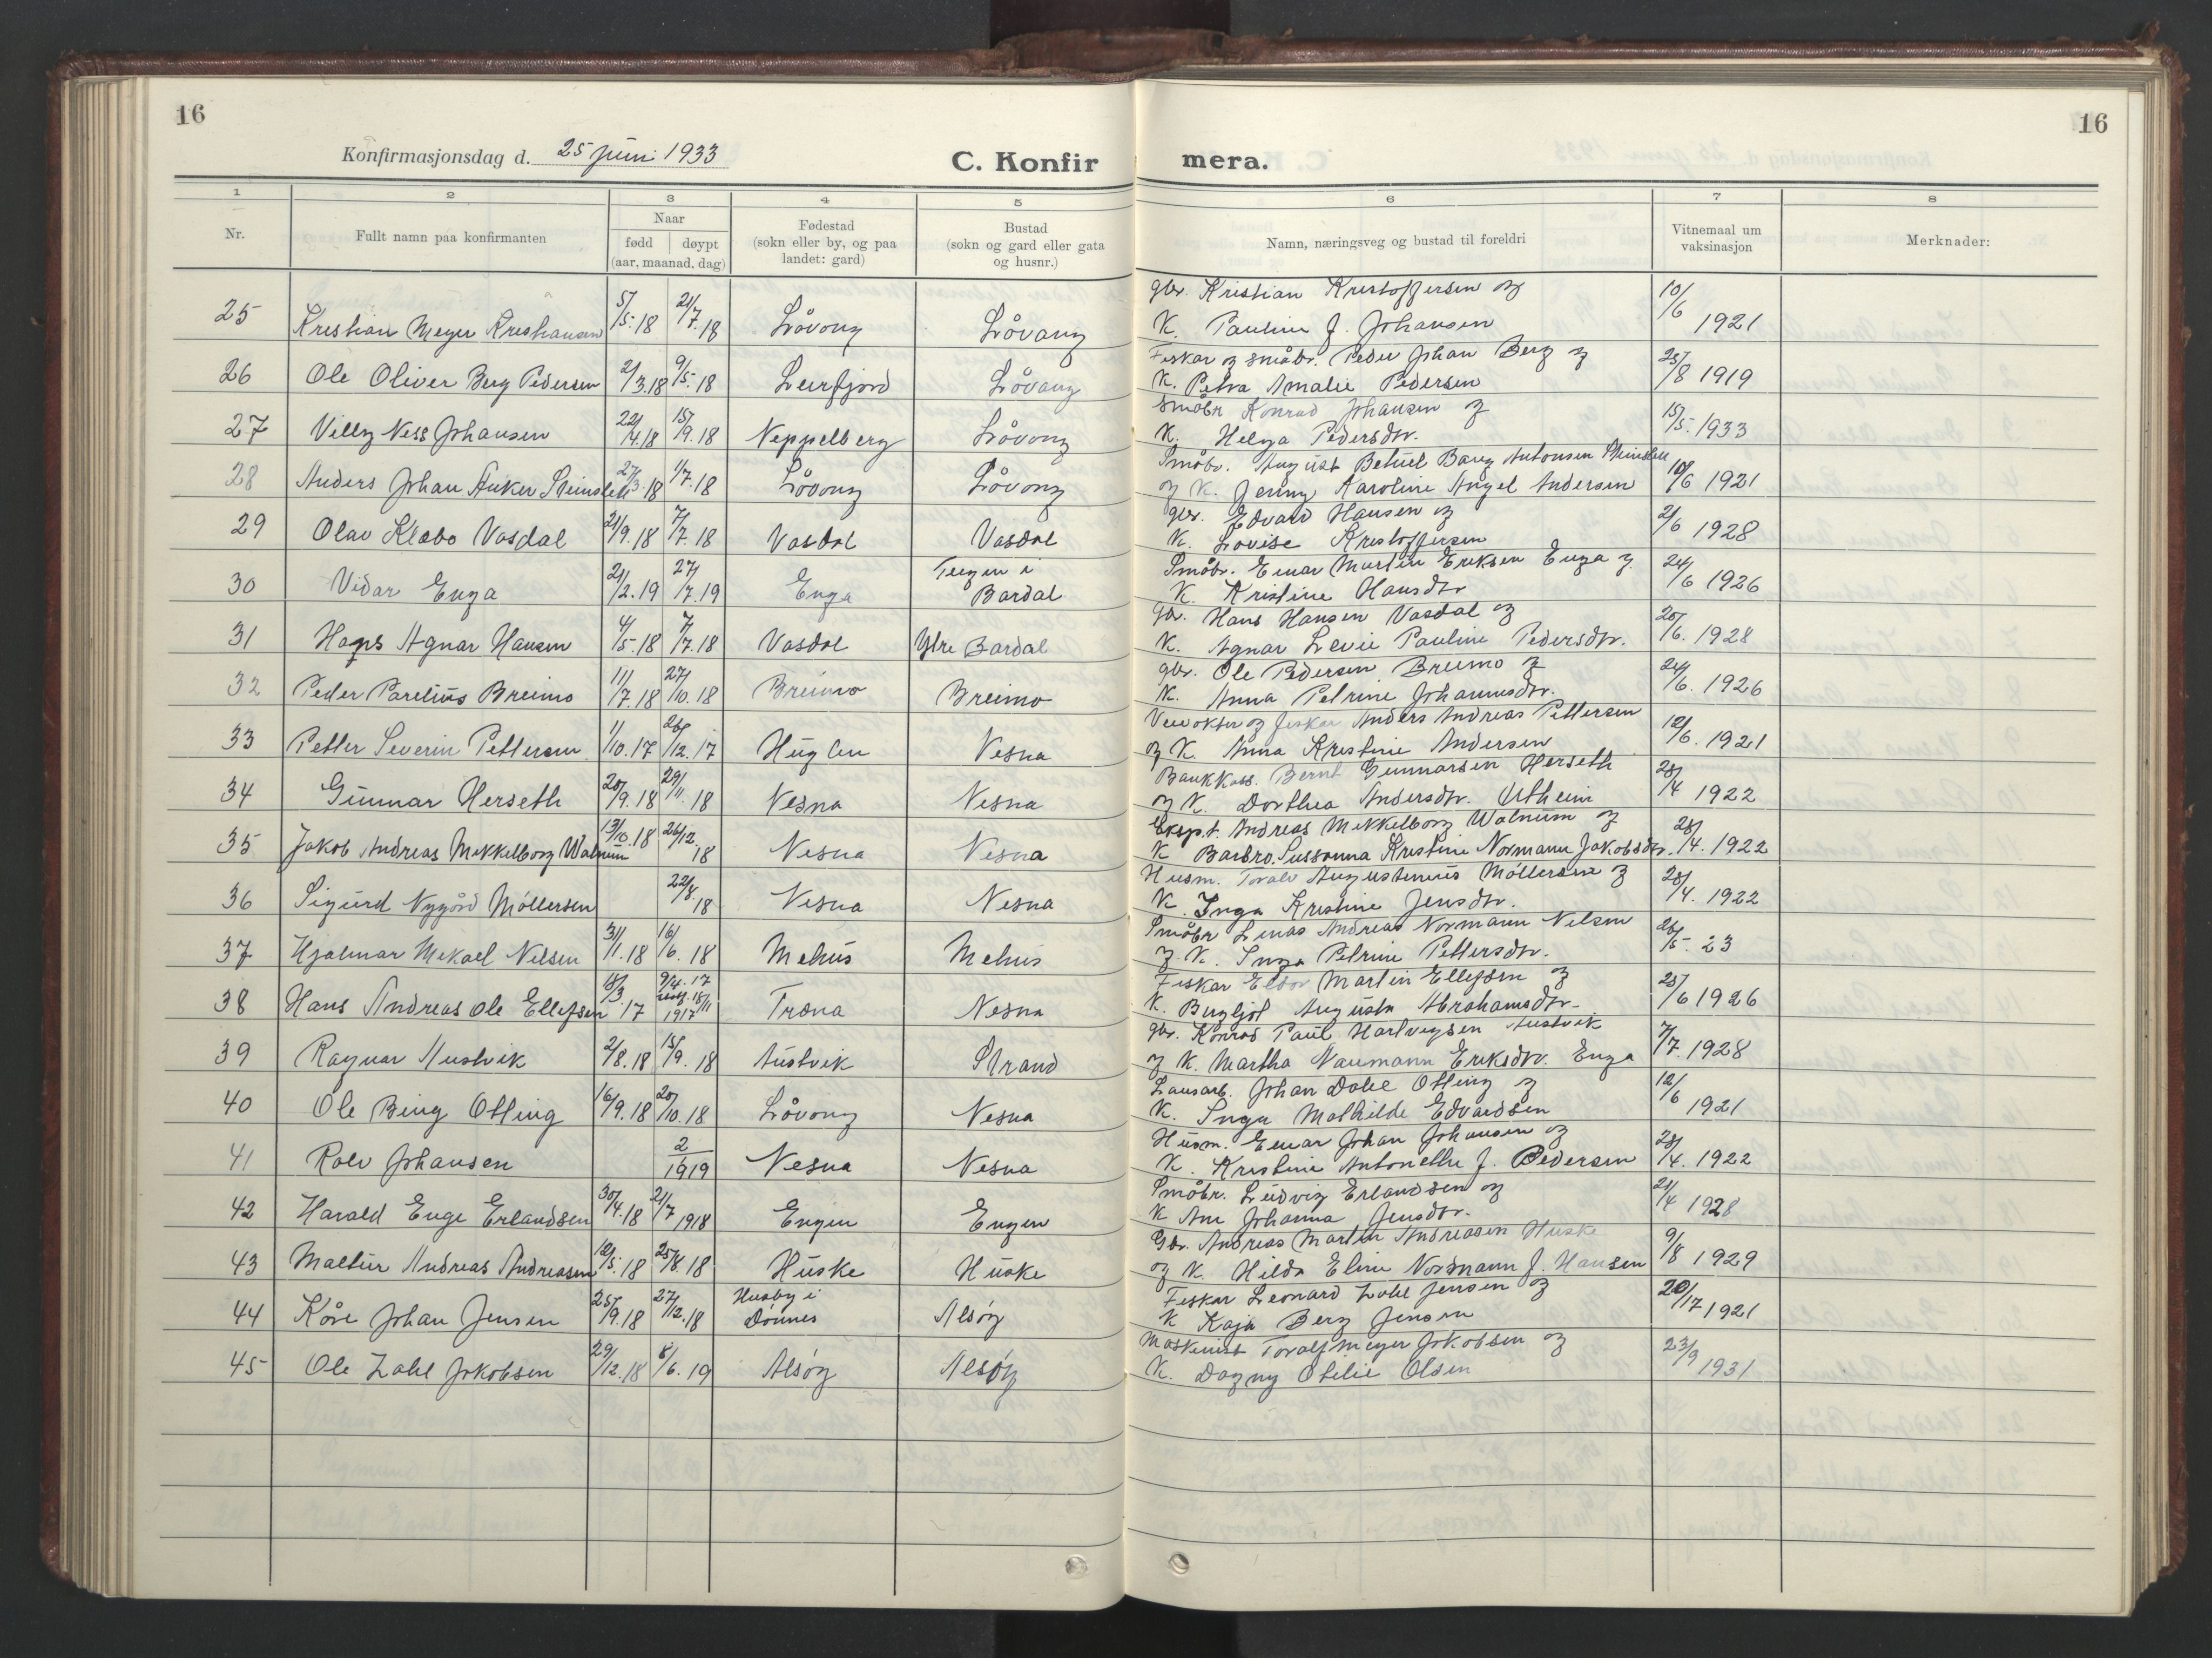 16
16
Konfirmasjonsdag d. 25 juni 1933
C. Konfir mera.
1 2 3 4 5 6 7 8
Nr.
Fullt namn paa konfirmanten
Naar
fødd døypt
(aar, maanad, dag)
Fødestad
(sokn eller by, og paa
landet: gard)
Bustad
(sokn og gard eller gata
og husnr.)
Namn, næringsveg og bustad til foreldri
Vitnemaal um
vaksinasjon
Merknader:
gbr. Kristian Kristoffersen og
25 Kristian Meyer Kristiansen 5/5.18 21/7.18 Løvong Løvong K. Pauline J. Johansen 10/6 1921
Fiskar og småbr. Peder Johan Berg og
26 Ole Oliver Berg Pedersen 2/3.18 9/5.18 Leirfjord Løvong K. Petra Amalie Pedersen 25/8 1919
Småbr Konrad Johansen og
27 Villy Ness Johansen 22/4.18 15/9.18 Neppelberg Løvong K. Helga Pedersdtr. 15/5.1933
Småbr. August Betuel Bang Antonsen Steinslett
28 Anders Johan Anker Steinslett 27/3.18 1/7.18 Løvong Løvong og K. Jenny Karoline Angel Andersen 10/6 1921
gbr. Edvard Hansen og
29 Olav Klæbo Vasdal 21/9.18 7/7.18 Vasdal Vasdal K. Lovise Kristoffersen 2/6 1928
Småbr. Einar Martin Eriksen Enga og
30 Vidar Enga 21/2.19 27/7.19 Enga Teigen i Bardal K. Kristine Hansdtr 24/6 1926
Gbr. Hans Hansen Vasdal og
31 Hans Agnar Hansen 4/5.18 7/7.18 Vasdal Ytre Bardal K. Agnar Levie Pauline Pedersdtr. 20/6.1928
gbr. Ole Pedersen Breimo og
32 Peder Parelius Breimo 11/7.18 27/10.18 Breimo Breimo K. Anna Petrine Johannesdtr. 24/6.1926
og fiskar Anders Andreas Pettersen
33 Petter Severin Pettersen 1/10.17 26/12.17 Huglen Nesna og K. Anna Kristine Andersen 12/6.1921
Bankkass. Bernt Gunnarsen Herseth
34 Gunnar Herseth 20/9.18 29/11.18 Nesna Nesna og K. Dorthea Andersdtr. Utheim 28/4 1922
Eksp.t. Andreas Mekkelborg Walnum og
35 Jakob Andreas Mekkelborg Walnum 13/10.18 26/12.18 Nesna Nesna K Barbro Sussanna Kristine Normann Jakobsdtr. 28/4.1922
Husm. Toralv Augustinius Möllersen og
36 Sigurd Nygård Möllersen 22/8.18 Nesna Nesna K. Inga Kristine Jensdtr. 28/4.1922
Småbr Linas Andreas Normann Nilsen
37 Hjalmar Mekael Nilsen 31/1.18 16/6.18 Mehus Mehus og K. Inga Petrine Pettersdtr. 26/5.23
Fiskar Eldor Martin Ellefsen og
38 Hans Andreas Ole Ellefsen 18/3.17 9/4.17 18/11 1917 Træna Nesna K. Bergljot Augusta Abrahamsdtr. 25/6 1926
gbr. Konrad Paul Hartvigsen Austvik
39 Ragnar Austvik 2/8.18 15/9.18 Austvik Strand og K. Martha Naumann Eriksdtr. Enga 7/7.1928
Lausarb. Johan Dahl Otting og
40 Ole Bing Otting 16/9.18 20/10.18 Løvong Nesna K. Inga Mathilde Edvardsen 12/6 1921
Husm. Einar Johan Johansen og
41 Rolv Johansen 2/1919 Nesna Nesna K. Kristine Antonette J. Pedersen 28/4.1922
Småbr. Ludvig Erlandsen og
42 Harald Enge Erlandsen 30/4.18 21/7 1918 Engen Engen K Ane Johanna Jensdtr. 21/4 1928
Gbr. Andreas Martin Andreasen Huske
43 Maltur Andreas Andreasen 12/5.18 25/8.18 Huske Huske og K. Hilda Eline Normann J. Hansen 9/8 1929
Fiskar Leonard Zahl Jensen og
44 Kåre Johan Jensen 25/9.18 27/12.18 Husby i Dönnes Alsöy K Kaja Berg Jensen 20/17 1921
Maskinist Toralf Meyer Jakobsen og
45 Ole Zahl Jakobsen 29/12.18 8/6.19 Alsöy Alsöy K. Dagny Otilie Olsen 23/3 1931